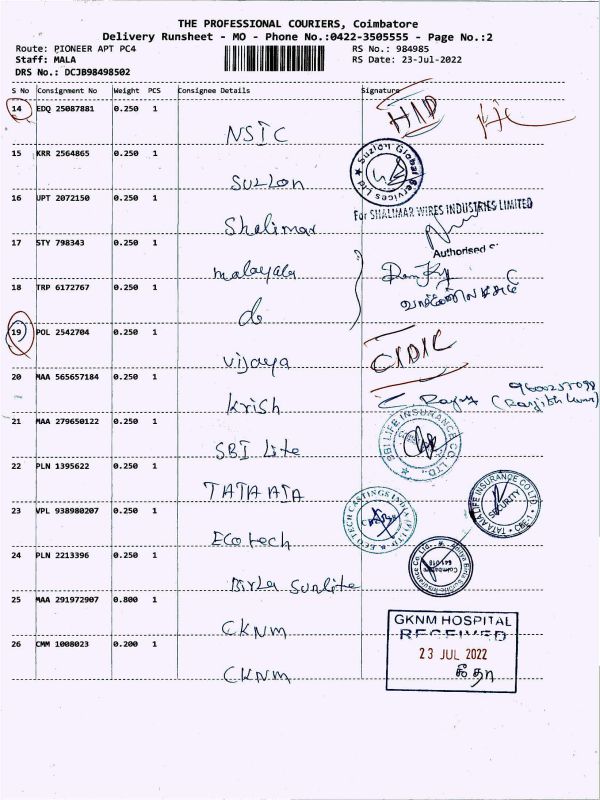 THE PROFESSIONAL COURIERS, Coimbatore
Delivery Runsheet - MO - Phone No.:0422-3505555 - Page No.:2
Route: PIONEER APT PC4 RS No.: 984985
Staff: MALA RS Date: 23-Jul-2022
DRS No.: DCJB98498502
S No Consignment No Weight PCS Consignee Details Signature
14 EDQ 25087881 0.250 1
NSIC
15 KRR 2564865 0.250 1
SUZLON
Suzlon Global Services Ltd
16 UPT 2072150 0.250 1
Shalimar
For SHALIMAR WIRES INDUSTRIES LIMITED
Authorised
17 STY 798343 0.250 1
malayala
18 TRP 6172767 0.250 1
do
19 POL 2542704 0.250 1
vijaya
20 MAA 565657184 0.250 1
Krish
21 MAA 279650122 0.250 1
SBI Life
SBI LIFE INSURANCE CO. LTD.
22 PLN 1395622 0.250 1
TATA AIA
TATA AIA LIFE INSURANCE CO LTD
SECURITY
CBE-1
23 VPL 938980207 0.250 1
Ecotech
ECO TECH CASTINGS INDIA (P) LTD
24 PLN 2213396 0.250 1
Birla Sunlife
Coimbatore
641 018
25 MAA 291972907 0.800 1
GKNM
26 CMM 1008023 0.200 1
GKNM
GKNM HOSPITAL
RECEIVED
23 JUL 2022
கீதா